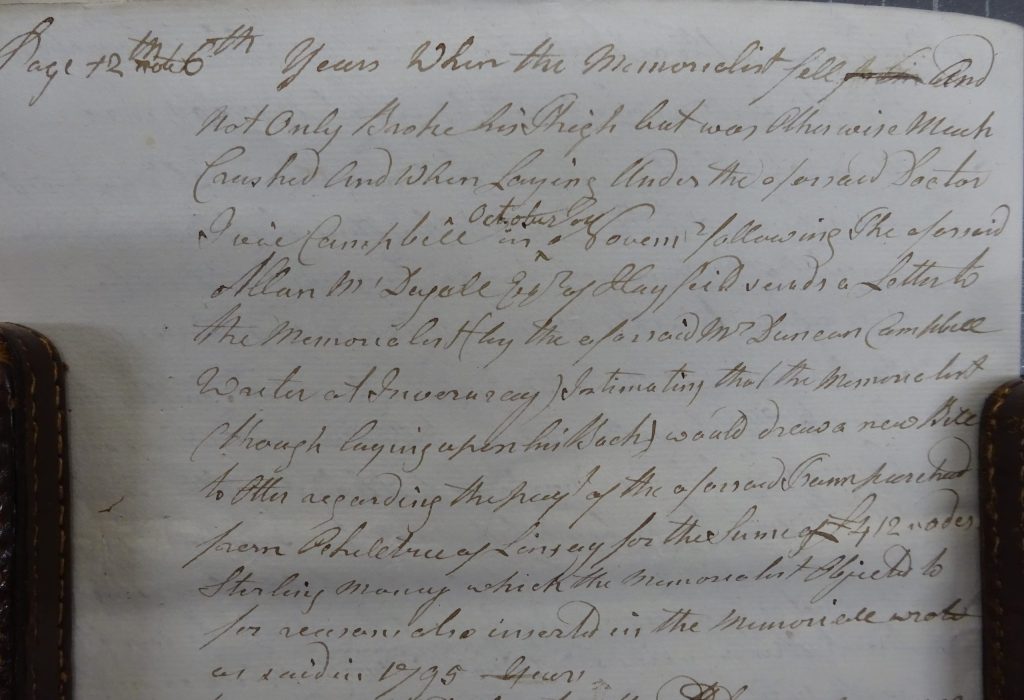 Page 12th note 6th Years When the Memorialist fell for him And
Not Only Broke his Thigh but was Otherwise Much
Crushed And When Laying Under the aforsaid Doctor
Campbell in October Novem following The aforsaid
Allan Mc Dugall Esqr of Hayfeild sends a Letter to
the Memorialist (by the aforsaid Mr Duncan Campbell
Writer at Inveraray) Intimating that the Memorialist
(though laying upon his Back) would draw a new Bill
to Offer regarding the pay.t of the aforsaid Farm purchased
from of for the Sume of £412
Sterling money which the Memorialist Objected to
for reasons also inserted in the Memoriall wrote
as said in 1795 Years